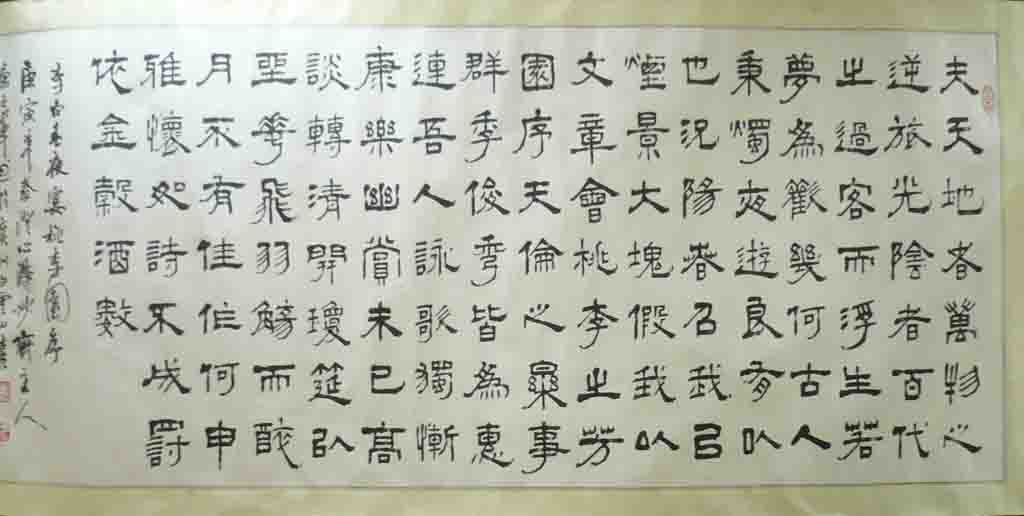 夫天地者萬物之
逆旅光陰者百代
之過客而浮生若
夢為歡幾何古人
秉燭夜遊良有以
也況陽春召我以
煙景大塊假我以
文章會桃李之芳
園序天倫之樂事
群季俊秀皆為惠
連吾人詠歌獨慚
康樂幽賞未已高
談轉清開瓊筵以
坐花飛羽觴而醉
月不有佳作何申
雅懷如詩不成罰
依金穀酒數
李白春夜宴桃李園序
庚寅年春主人